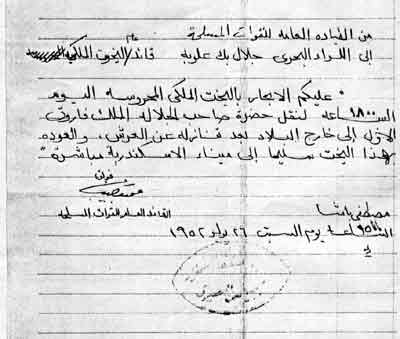 من القيادة العامة للقوات المسلحة
إلى اللواء البحرى جلال بك علوبه قائد عام اليخوت الملكية
" عليكم الابحار باليخت الملكى المحروسه اليوم
الساعة ١٨٠٠ لنقل حضرة صاحب الجلاله الملك فاروق
الاول إلى خارج البلاد بعد تنازله عن العرش والعوده
بهذا اليخت سليما إلى ميناء الاسكندرية مباشرة "
القائد العام للقوات المسلحه
مصطفى باشا
الساعة يوم السبت ٢٦ يوليو ١٩٥٢